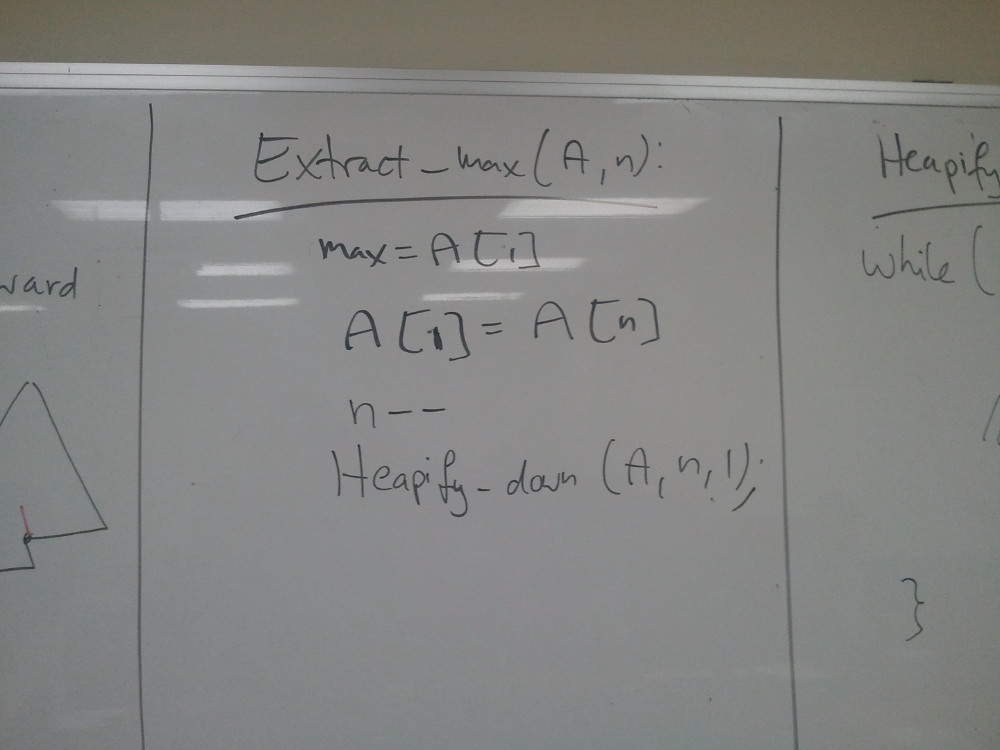 Extract_max(A,n):
max = A[1]
A[1] = A[n]
n--
Heapify_down (A, n, 1);
ward
Heapify
While (
}